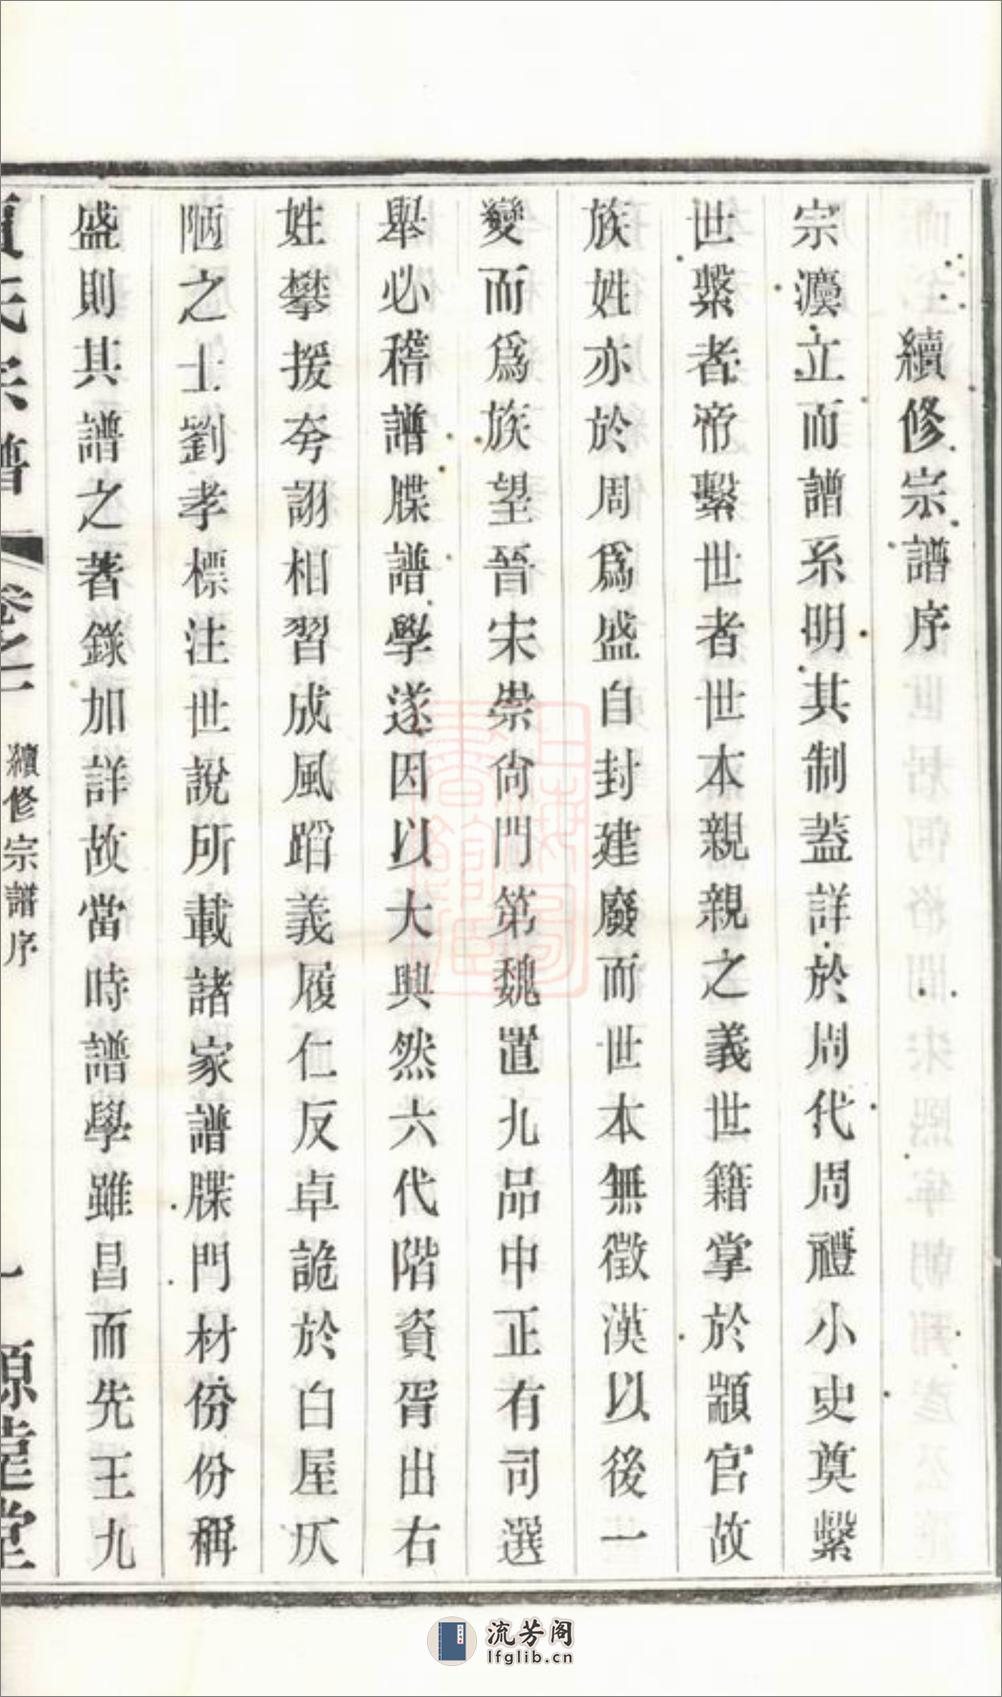 續修宗譜序
宗灋立而譜系明其制蓋詳於周代周禮小史奠繫
世繫者帝繫世者世本親親之義世籍掌於顓官故
族姓亦於周為盛自封建廢而世本無徵漢以後一
變而為族望晉宋崇尙門第魏置九品中正有司選
舉必稽譜牒譜學遂因以大興然六代階資胥出右
姓攀援夸詡相習成風蹈義履仁反卓詭於白屋仄
陋之士劉孝標注世說所載諸家譜牒門材份份稱
盛則其譜之著錄加詳故當時譜學雖昌而先王九
氏宗譜
卷之一
續修宗譜序
一
源遠堂
流芳阁
lfglib.cn